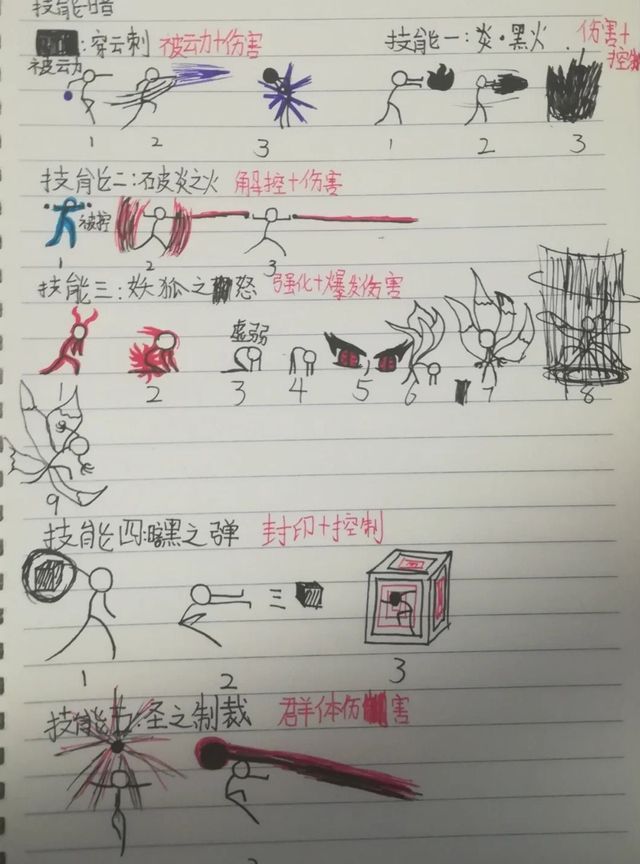 技能暗
:穿云刺 被动力+伤害
技能一:炎·黑火 伤害+控制
被动力
1 2 3
1 2 3
技能二:破炎之火 解控+伤害
被控
1 2 3
技能三:妖狐之怒 强化+爆发伤害
虚弱
1 2 3 4 5 6 7 8
9
技能四:暗黑之弹 封印+控制
1 2 3
技能五:圣之制裁 群体伤害